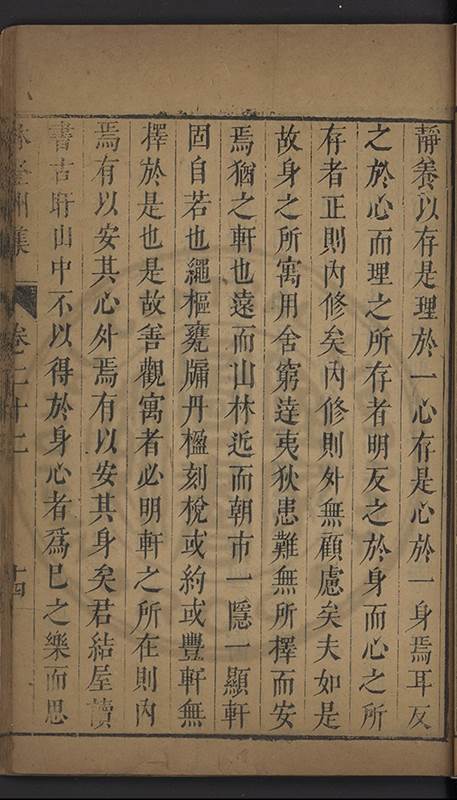 靜養以存是理於一心存是心於一身焉耳反
之於心而理之所存者明反之於身而心之所
存者正則內修矣內修則外無顧慮矣夫如是
故身之所寓用舍窮達夷狄患難無所擇而安
焉猶之軒也遠而山林近而朝市一隱一顯軒
固自若也繩樞甕牖丹楹刻梲或約或豐軒無
擇於是也是故善觀寓者必明軒之所在則內
焉有以安其心外焉有以安其身矣君結屋讀
書古盱山中不以得於身心者爲已之樂而思
州集 卷二十二 十四